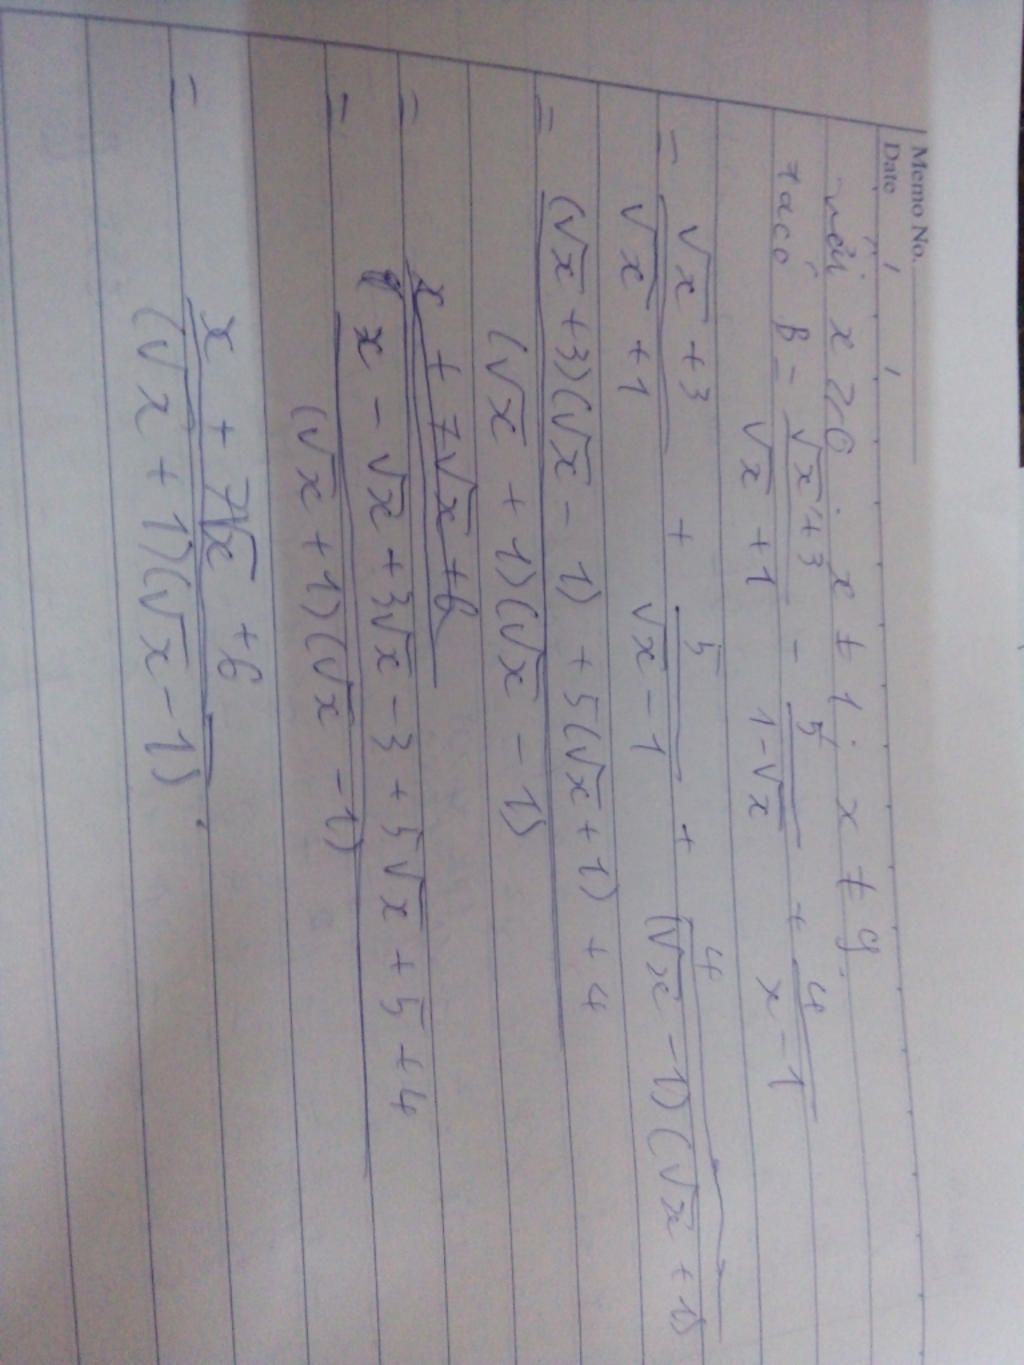 Memo No.
Date / /
với x ≥ 0 ; x ≠ 1 ; x ≠ 9.
ta có B = (√x + 3)/(√x + 1) - 5/(1 - √x) + 4/(x - 1)
= (√x + 3)/(√x + 1) + 5/(√x - 1) + 4/((√x - 1)(√x + 1))
= ((√x + 3)(√x - 1) + 5(√x + 1) + 4)/((√x + 1)(√x - 1))
= x + 7√x + 6
= (x - √x + 3√x - 3 + 5√x + 5 + 4)/((√x + 1)(√x - 1))
= (x + 7√x + 6)/((√x + 1)(√x - 1)).